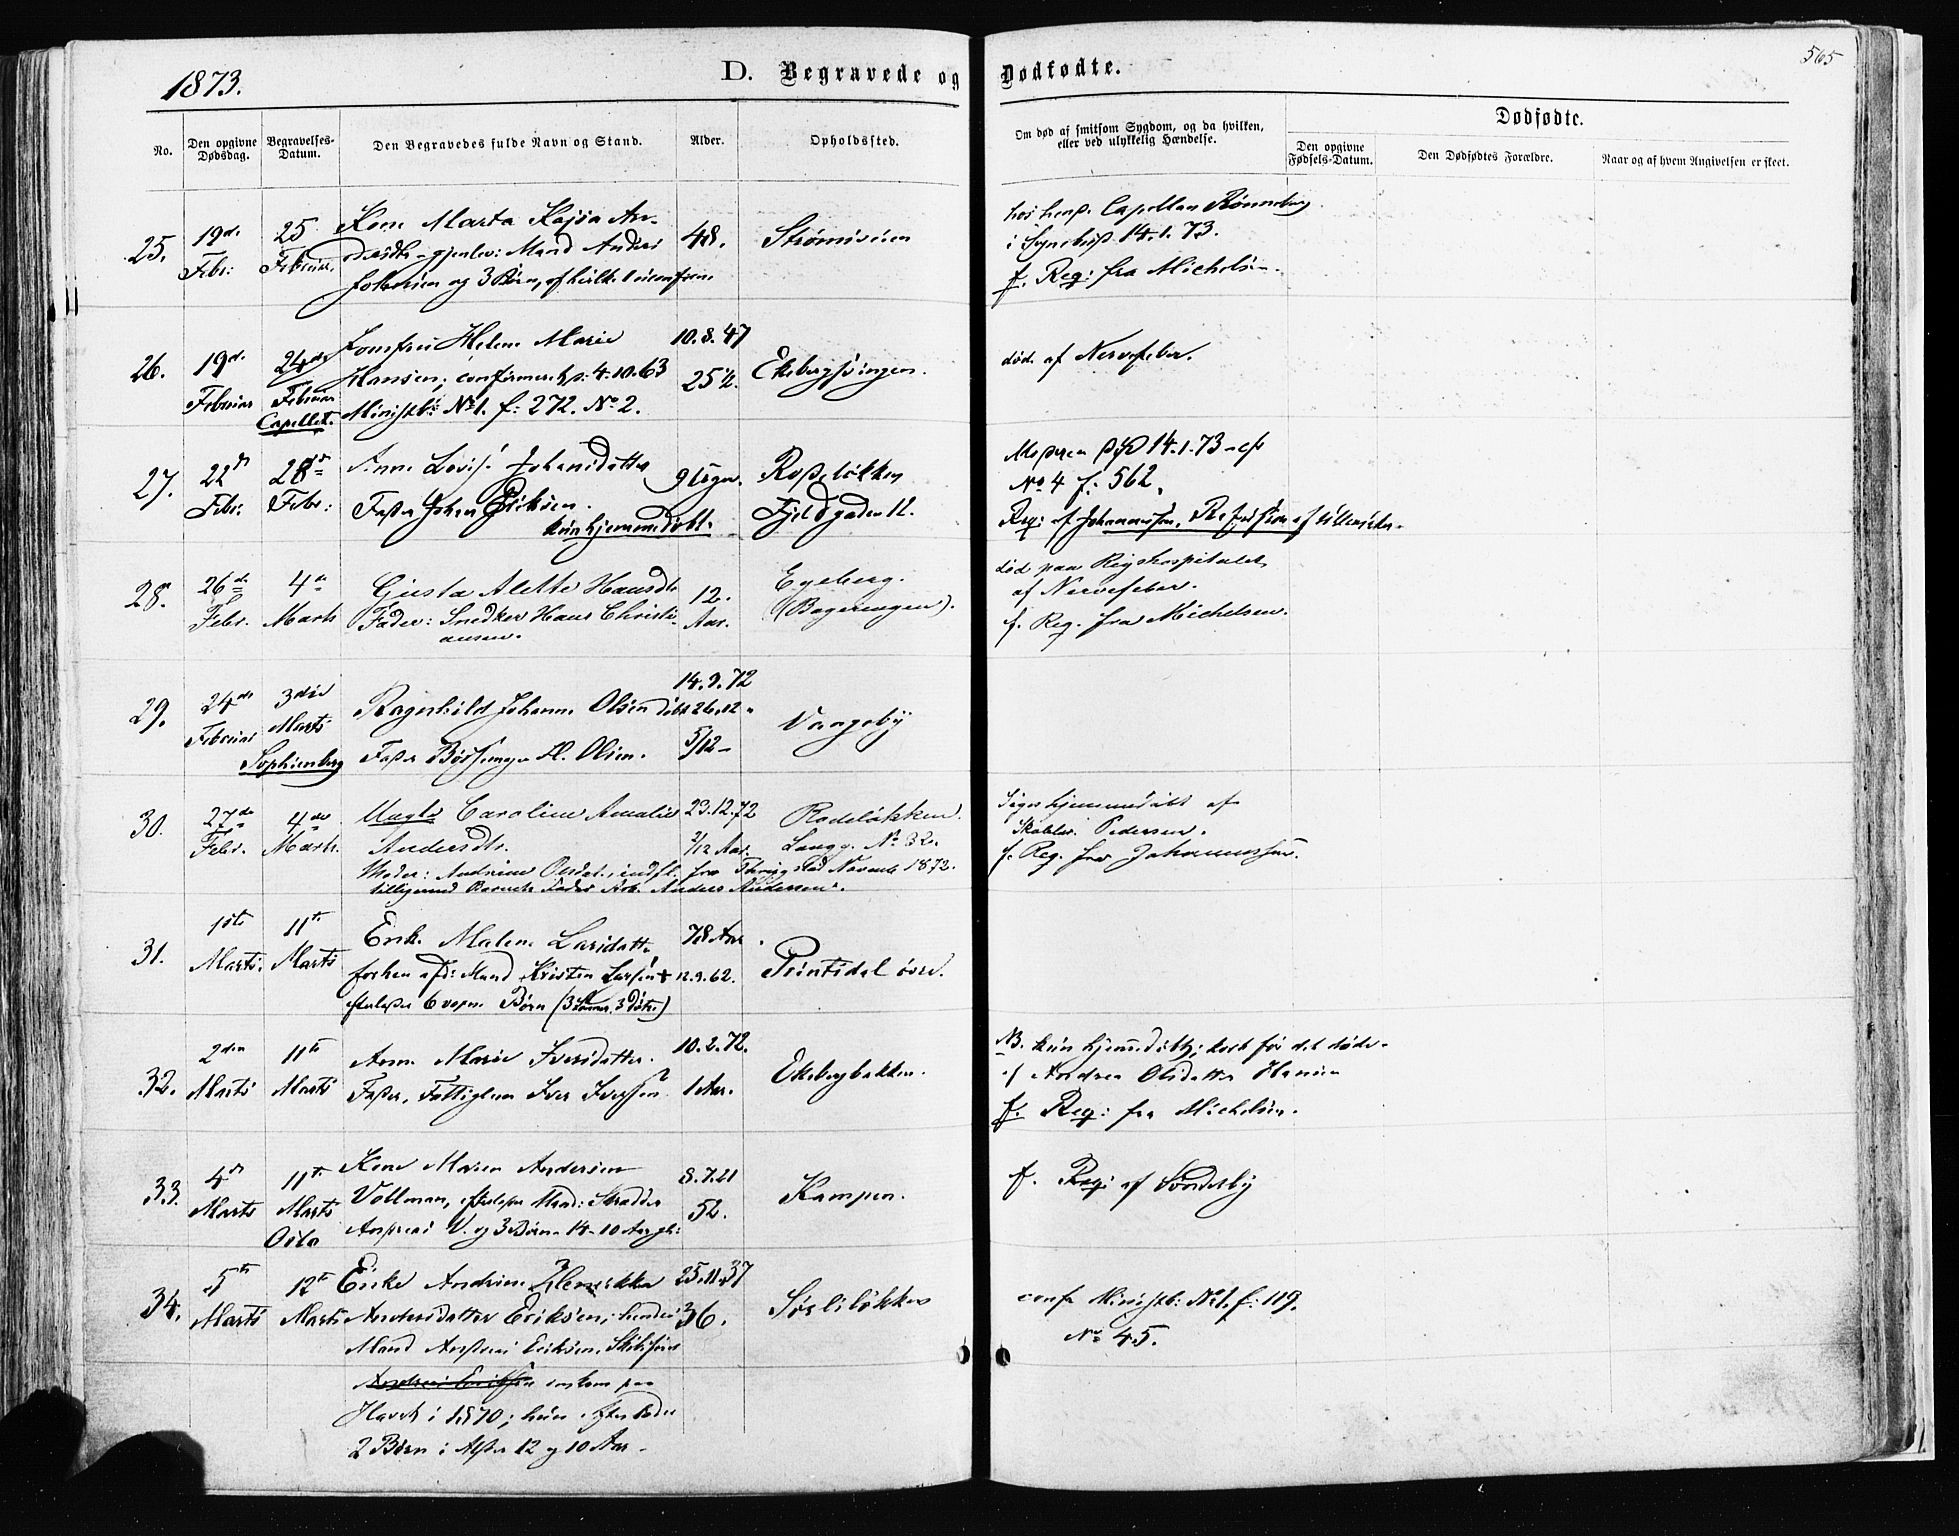 1873.
D. Begravede og Dødfødte.
565
No.
Den opgivne Dødsdag.
Begravelses-Datum.
Den Begravedes fulde Navn og Stand.
Alder.
Opholdssted.
Om død af smitsom Sygdom, og da hvilken, eller ved ulykkelig Hændelse.
Dødfødte.
Den opgivne Fødsels-Datum.
Den Dødfødtes Forældre.
Naar og af hvem Angivelsen er skeet.
25.
19de Febr:
25 Februar.
Kone Marta Kajsa An-
gjenlev: Mand Anders
og 3 Børn, af hvilke 1 uconfirm.
48.
Strømsveien
Capellan Rønneberg
i 14.1.73.
f. Reg: fra Michelsen.
26.
19de Februar
24de Februar Capellet.
Jomfru Helene Marie
Hansen; confirmeret 4.10.63
Ministb: No 1. f: 272. No 2.
10.8.47
25½.
Ekebergsvingen.
død af Nervefeber.
27.
22de Febr.
28de Febr:
Anne Lovise Johansdatter
Fader Johan Eriksen.
kun hjemmedøbt.
9 Uger.
Rodeløkken
Fjeldgaden 11.
14.1.73
No 4 f: 562.
Reg: af Johannessen.
28.
26de Febr.
4de Marts
Gusta Alette Hansdtr
Fader: Snedker Hans Christi-
ansen.
12. Aar.
Egeberg.
død paa Rigshospitalet
af Nervefeber.
f. Reg. fra Michelsen.
29.
24de Februar
3die Marts Sophienberg
Ragnhild Johanne Olsen døbt 26.12
Fader Bøssemager Olsen.
14.9.72
5/12
Vaageby
30.
27de Febr.
4de Marts.
Ungte Caroline Amalie
Andersdtr.
Moder: Andrine Olsdt. indfl. fra Novemb 1872.
Barnets Fader Arb. Anders Andersen.
23.12.72
2/12 Aar.
Rodeløkken.
Langg. No 32.
hjemmedøbt af
Pedersen.
f. Reg. fra Johannessen.
31.
1ste Marts.
11te Marts
Enke Malene Larsdatter,
Mand Kristen Larsen + 12.9.62.
efterlader 6 voxne Børn (3 Sønner, 3 Døtre)
78 Aar.
Svartdal øvre.
32.
2den Marts
11te Marts
Anne Marie Iversdatter.
Fader, Fattiglem Iver Iversen
10.2.72.
1 Aar.
Ekebergbakken.
NB. kun hjemmedøbt; kort før det døde
af Andrea Olsdatter Hansen
f. Reg: fra Michelsen.
33.
4de Marts
11te Marts Oslo
Kone Maren Andersen
Vollman, efterlader Mand: Skrædder
Andreas V. og 3 Børn 14-10 Aar gl:
8.7.21
52.
Kampen.
f. Reg: af Sønderby
34.
5te Marts
12te Marts
Enke Andrine Henrikka
Andersdatter Eriksen; hendes
Mand Andreas Eriksen, Skibsfører
Andreas Eriksen omkom paa
Havet i 1870; hun efterlader
2 Børn i Alder 12 og 10 Aar.
25.11.37
36.
Sørliløkken
conf. Ministb: No 1. f: 119.
No 45.